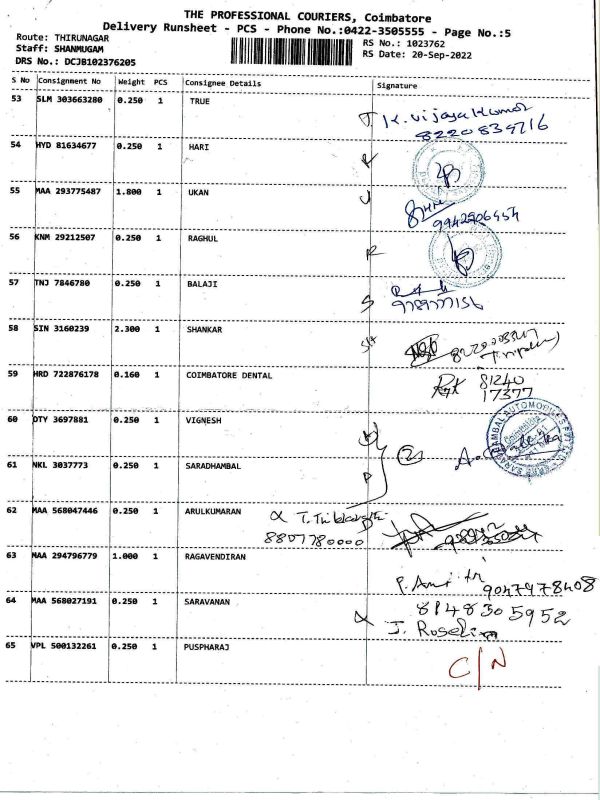 THE PROFESSIONAL COURIERS, Coimbatore
Delivery Runsheet - PCS - Phone No.:0422-3505555 - Page No.:5
Route: THIRUNAGAR
RS No.: 1023762
Staff: SHANMUGAM
RS Date: 20-Sep-2022
DRS No.: DCJB102376205
S No Consignment No Weight PCS Consignee Details Signature
53 SLM 303663280 0.250 1 TRUE K. Vijaya Kumar
8220839716
54 HYD 81634677 0.250 1 HARI
55 MAA 293775487 1.800 1 UKAN
9942506454
56 KNM 29212507 0.250 1 RAGHUL
57 TNJ 7846780 0.250 1 BALAJI
9789777156
58 SIN 3160239 2.300 1 SHANKAR
59 HRD 722876178 0.160 1 COIMBATORE DENTAL 81240
17377
60 DTY 3697881 0.250 1 VIGNESH
61 NKL 3037773 0.250 1 SARADHAMBAL
62 MAA 568047446 0.250 1 ARULKUMARAN
8807780000
63 MAA 294796779 1.000 1 RAGAVENDIRAN
9047978408
64 MAA 568027191 0.250 1 SARAVANAN 8148305952
J. Roselin
65 VPL 500132261 0.250 1 PUSPHARAJ C/N